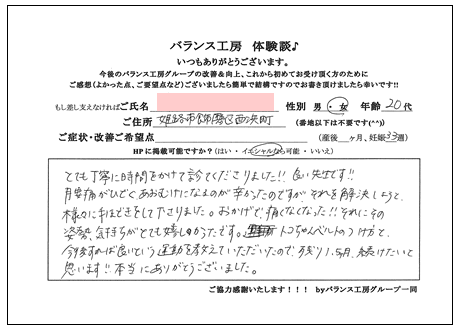 バランス工房 体験談♪
いつもありがとうございます。
今後のバランス工房グループの改善&向上、これから初めてお受け頂く方のために
ご感想(よかった点、ご要望点など)ございましたら簡単で結構ですのでお書き頂けましたら幸いです!!
もし差し支えなければご氏名 性別 男・女 年齢 20代
ご住所 姫路市飾磨区西浜町 (番地以下は不要です(^^)
ご症状・改善ご希望点 (産後 ヶ月、妊娠 33週)
HPに掲載可能ですか?(はい・イニシャルなら可能・いいえ)
とても丁寧に時間をかけて診てくださりました!! 良い先生です!!
腰痛がひどく、あおむけになるのが辛かったのですが、それを解決しようと、
様々に手ほどきをして下さりました。おかげで、痛くなくなった!! それにその
姿勢、気持ちがとても嬉しかったです。トコちゃんベルトのつけ方と、
今後すれば良いという運動を教えていただいたので、残り1.5ヶ月、続けたいと
思います!! 本当にありがとうございました。
ご協力感謝いたします!!! byバランス工房グループ一同